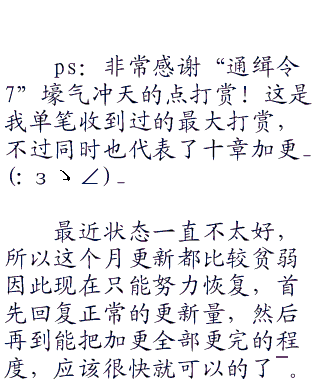 ps：非常感谢“通缉令
7”壕气冲天的点打赏！这是
我单笔收到过的最大打赏，
不过同时也代表了十章加更_
(:з丶∠)_
最近状态一直不太好，
所以这个月更新都比较贫弱
因此现在只能努力恢复，首
先回复正常的更新量，然后
再到能把加更全部更完的程
度，应该很快就可以的了¯。